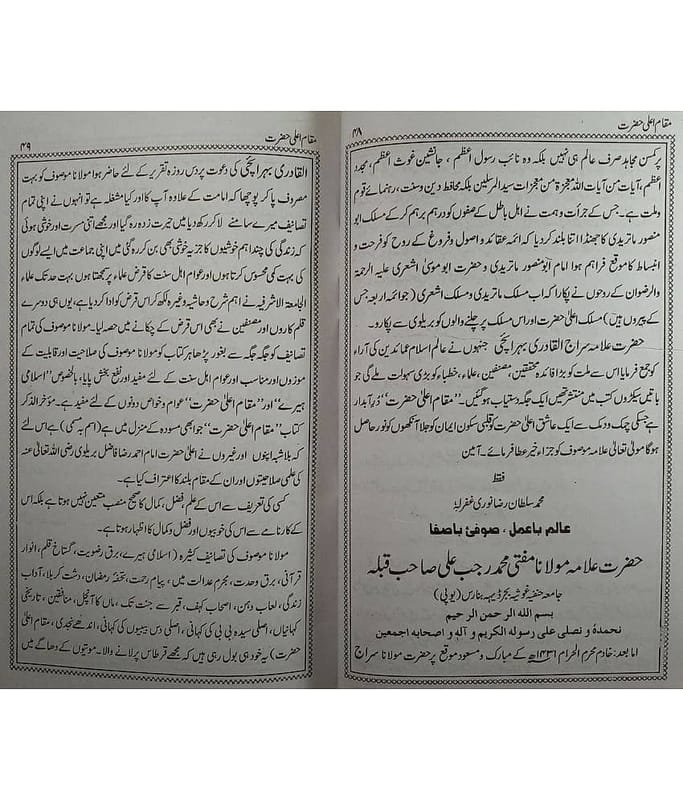 مقام اعلیٰ حضرت ۴۸
پرکسن مجاہد صرف عالم ہی نہیں بلکہ وہ نائب رسول اعظم، جانشین غوث اعظم، مجدد
اعظم، آیات من آیات اللہ معجزة من معجزات سید المرسلین بلکہ محافظ دین وسنت، رہنمائے قوم
وملت ہے۔ جس کے جرأت وہمت نے اہل باطل کے صفوں کو درہم برہم کر کے مسلک ابو
منصور ماتریدی کا جھنڈا اتنا بلند کر دیا کہ ائمہ عقائد و اصول و فروع کے روح کو فرحت و
انبساط کا موقع فراہم ہوا امام ابو منصور ماتریدی و حضرت ابو موسیٰ اشعری علیہ الرحمة
والرضوان کے روحوں نے پکارا کہ اب مسلک ماتریدی و مسلک اشعری (جو ائمہ اربعہ جس
کے پیروں ہیں) مسلک اعلیٰ حضرت اور اس مسلک پر چلنے والوں کو بریلوی سے پکارو۔
حضرت علامہ سراج القادری بہرائچی جنہوں نے عالم اسلام عمائدین کی آراء
کو جمع فرمایا اس سے ملت کو بڑا فائدہ محققین، مصنفین، علماء، خطباء کو بڑی سہولت ملے گی جو
باتیں سیکڑوں کتب میں منتشر تھیں ایک جگہ دستیاب ہو گئیں۔ ”مقام اعلیٰ حضرت“ دُر آبدار
ہے جسکی چمک ودمک سے ایک عاشق اعلیٰ حضرت کو قلبی سکون ایمان کو جلا آنکھوں کو نور حاصل
ہوگا مولیٰ تعالیٰ علامہ موصوف کو جزاء خیر عطا فرمائے۔ آمین
فقط
محمد سلطان رضا نوری غفرلہ
عالم باعمل، صوفیٔ باصفا
حضرت علامہ مولانا مفتی محمد رجب علی صاحب قبلہ
جامعہ حنفیہ غوثیہ بجرڈیہہ بنارس (یوپی)
بسم الله الرحمن الرحيم
نحمدهٗ و نصلى على رسوله الكريم و آلهٖ و اصحابه اجمعين
اما بعد: خادم محرم الحرام ۱۴۳۱ھ کے مبارک و مسعود موقع پر حضرت مولانا سراج
مقام اعلیٰ حضرت ۴۹
القادری بہرائچی کی دعوت پر دس روزہ تقریر کے لئے حاضر ہوا مولانا موصوف کو بہت
مصروف پا کر پوچھا کہ امامت کے علاوہ آپ کا اور کیا مشغلہ ہے تو انہوں نے اپنی تمام
تصانیف میرے سامنے لا کر رکھ دیا میں حیرت زدہ رہ گیا اور مجھے اتنی مسرت اور خوشی ہوئی
کہ زندگی کی چند اہم خوشیوں کا جز یہ خوشی بھی بن کر رہ گئی میں اپنی جماعت میں ایسے لوگوں
کی بہت کمی محسوس کرتا ہوں اور عوام اہل سنت کا قرض علماء پر سمجھتا ہوں بہت حد تک علماء
الجامعة الاشرفیہ نے اہم شرح وحاشیہ وغیرہ لکھ کر اس قرض کو ادا کر دیا ہے، یوں ہی دوسرے
قلم کاروں اور مصنفین نے بھی اس قرض کے چکانے میں حصہ لیا۔ مولانا موصوف کی تمام
تصانیف کو جگہ جگہ سے بغور پڑھا ہر کتاب کو مولانا موصوف کی صلاحیت اور قابلیت کے
موزوں اور مناسب اور عوام اہل سنت کے لئے مفید اور نفع بخش پایا، بالخصوص ”اسلامی
ہیرے“ اور ”مقام اعلیٰ حضرت“ عوام و خواص دونوں کے لئے مفید ہے۔ مؤخر الذکر
کتاب ”مقام اعلیٰ حضرت“ جو ابھی مسودہ کے منزل میں ہے (اسم بامسمیٰ) ہے اس لئے
کہ بلاشبہ اپنوں اور غیروں نے اعلیٰ حضرت امام احمد رضا فاضل بریلوی رضی اللہ تعالیٰ عنہ
کی علمی صلاحیتوں اور ان کے مقام بلند کا اعتراف کیا ہے۔
کسی کی تعریف سے اس کے علم، فضل، کمال کا صحیح منصب متعین نہیں ہوتا ہے بلکہ اس
کے کارنامے سے اس کی خوبیوں اور فضل و کمال کا اظہار ہوتا ہے۔
مولانا موصوف کی تصانیف کثیرہ (اسلامی ہیرے، برق رضویت، گستاخ قلم، انوار
قرآنی، برق وحدت، مجرم عدالت میں، پیام رحمت، تحفۂ رمضان، دشت کربلا، آداب
زندگی، لعاب دہن، اصحاب کہف، قبر سے جنت تک، ماں کا آنچل، منافقین، تاریخی
کہانیاں، اصلی سیدہ بی بی کی کہانی، اصلی دس بیبیوں کی کہانی، اندھے نجدی، مقام اعلیٰ
حضرت) یہ خود ہی بول رہی ہیں کہ مجھے قرطاس پر لانے والا۔ موتیوں کے دھاگے میں